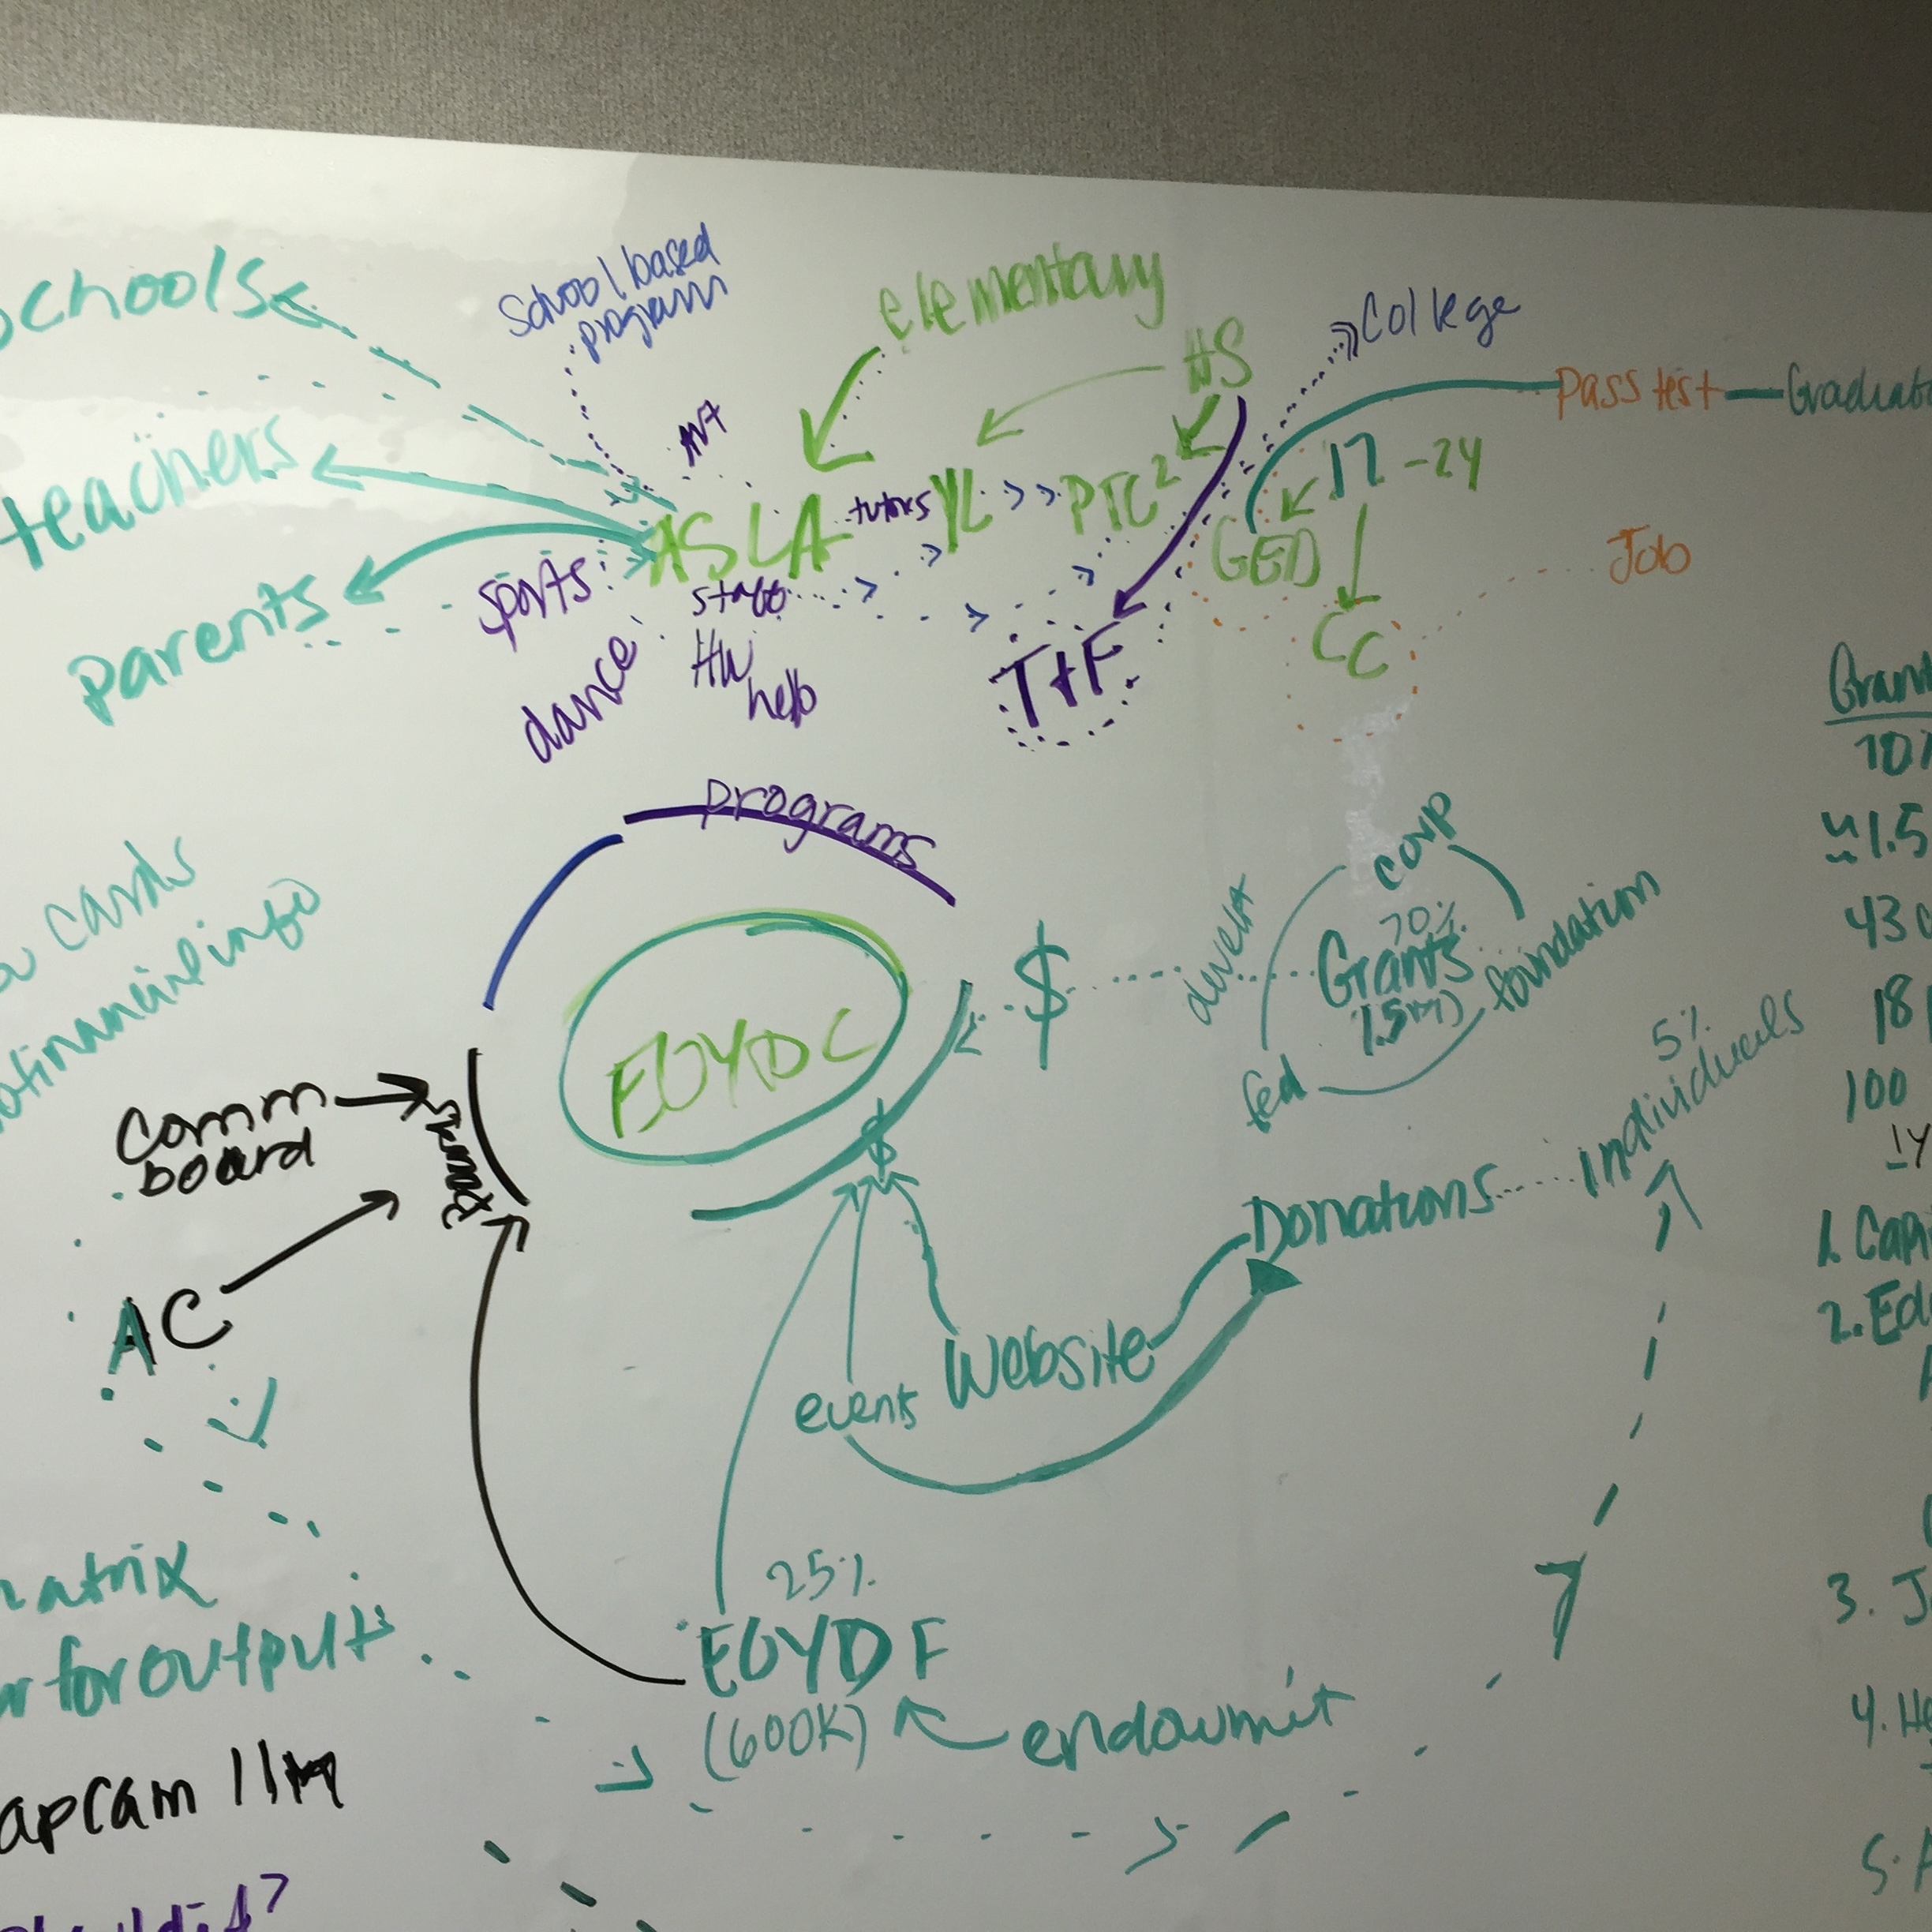 chools
School based
program
elementary
HS
College
Pass test
Graduat
Art
17-24
teachers
ASLA
tutors
YL
PTC²
GED
Job
parents
sports
staff
CC
dance
HW
help
T+F
Gran
programs
corp
1.5
cards
financial info
70%
Grants
1.5m)
foundation
fed
$
43
EOYDC
5%
individuals
18
100
Comm
board
$
Donations
1y
AC
1. Cap
2. Ed
Website
events
25%
atrix
for output
3. J
EOYDF
(600K)
endowmit
4. He
5. A